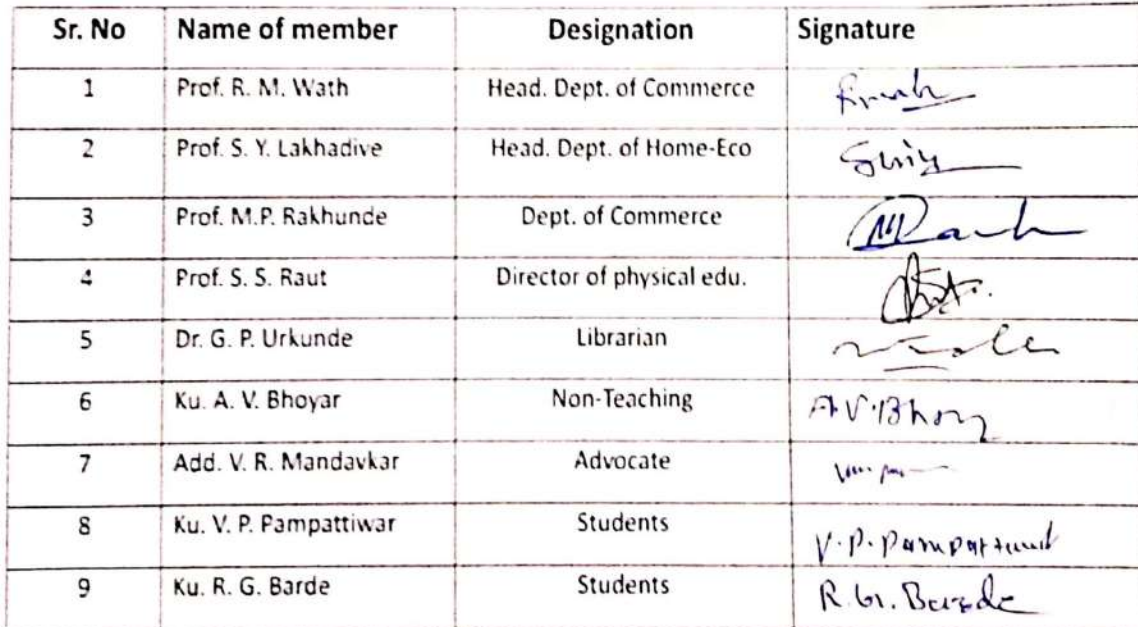 Sr. No Name of member Designation Signature
1 Prof. R. M. Wath Head. Dept. of Commerce
2 Prof. S. Y. Lakhadive Head. Dept. of Home-Eco
3 Prof. M.P. Rakhunde Dept. of Commerce
4 Prof. S. S. Raut Director of physical edu.
5 Dr. G. P. Urkunde Librarian
6 Ku. A. V. Bhoyar Non-Teaching A.V.Bhoy
7 Add. V. R. Mandavkar Advocate
8 Ku. V. P. Pampattiwar Students V.P.
9 Ku. R. G. Barde Students R.G. Barde